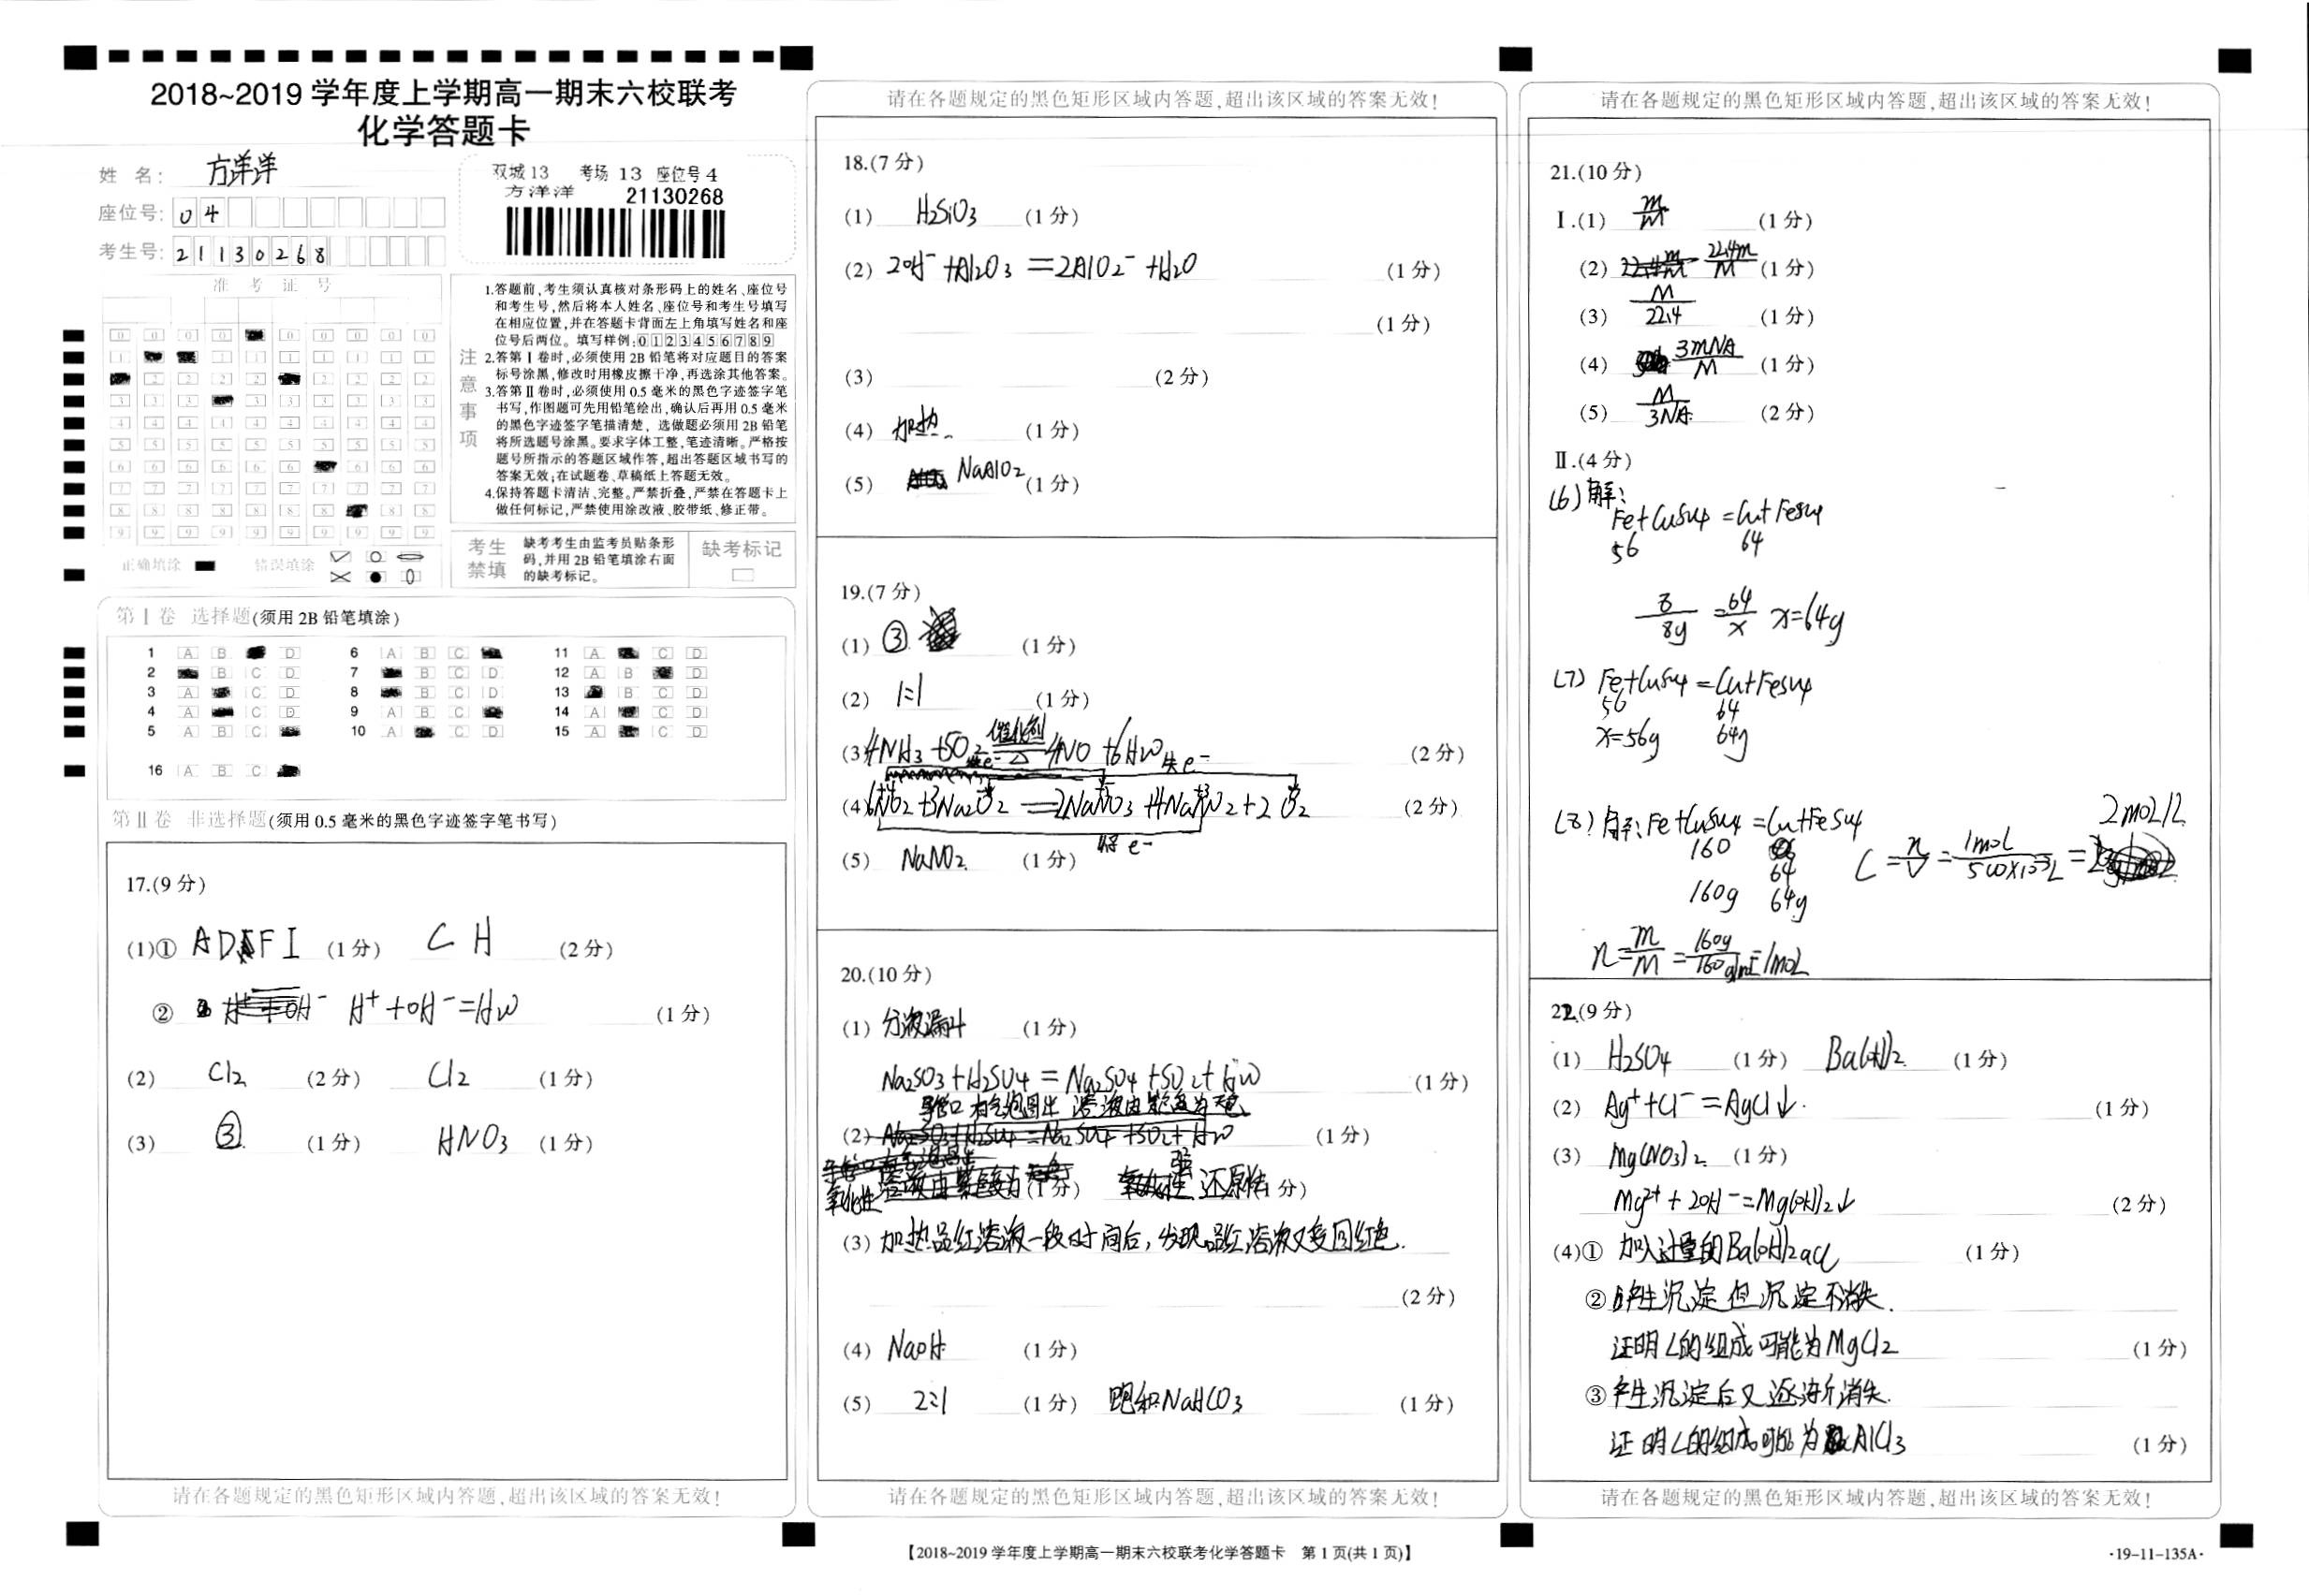 2018~2019 学年度上学期高一期末六校联考
化学答题卡
姓 名： 方洋洋
座位号： 0 4
考生号： 2 1 1 3 0 2 6 8
双城13 考场 13 座位号 4
方洋洋 21130268
准 考 证 号
注意事项
1.答题前,考生须认真核对条形码上的姓名、座位号
和考生号,然后将本人姓名、座位号和考生号填写
在相应位置,并在答题卡背面左上角填写姓名和座
位号后两位。填写样例:0 1 2 3 4 5 6 7 8 9
2.答第Ⅰ卷时,必须使用2B铅笔将对应题目的答案
标号涂黑,修改时用橡皮擦干净,再选涂其他答案。
3.答第Ⅱ卷时,必须使用0.5毫米的黑色字迹签字笔
书写,作图题可先用铅笔绘出,确认后再用0.5毫米
的黑色字迹签字笔描清楚,选做题必须用2B铅笔
将所选题号涂黑。要求字体工整,笔迹清晰。严格按
题号所指示的答题区域作答,超出答题区域书写的
答案无效;在试题卷、草稿纸上答题无效。
4.保持答题卡清洁、完整。严禁折叠,严禁在答题卡上
做任何标记,严禁使用涂改液、胶带纸、修正带。
正确填涂 错误填涂
考生禁填
缺考考生由监考员贴条形
码,并用2B铅笔填涂右面
的缺考标记。
缺考标记
第Ⅰ卷 选择题(须用2B铅笔填涂)
1 A B D 6 A B C 11 A C D
2 B C D 7 B C D 12 A B D
3 A C D 8 B C D 13 B C D
4 A C D 9 A B C 14 A C D
5 A B C 10 A C D 15 A C D
16 A B C
第Ⅱ卷 非选择题(须用0.5毫米的黑色字迹签字笔书写)
17.(9分)
(1)① A D F I (1分) C H (2分)
② H⁺+OH⁻=H₂O (1分)
(2) Cl₂ (2分) Cl₂ (1分)
(3) ③ (1分) HNO₃ (1分)
请在各题规定的黑色矩形区域内答题,超出该区域的答案无效!
请在各题规定的黑色矩形区域内答题,超出该区域的答案无效!
18.(7分)
(1) H₂SiO₃ (1分)
(2) 2OH⁻+Al₂O₃=2AlO₂⁻+H₂O (1分)
(1分)
(3) (2分)
(4) 加热 (1分)
(5) NaAlO₂ (1分)
19.(7分)
(1) ③ (1分)
(2) 1:1 (1分)
(3) 4NH₃+5O₂ 催化剂 △ 4NO+6H₂O (2分)
失e⁻
(4) 6NO₂+3Na₂O₂=2NaNO₃+4NaNO₂+2O₂ (2分)
得e⁻
(5) NaNO₂ (1分)
20.(10分)
(1) 分液漏斗 (1分)
Na₂SO₃+H₂SO₄=Na₂SO₄+SO₂+H₂O (1分)
导管口有气泡冒出 溶液由紫色变为无色
(2) (1分)
氧化性 (1分) 还原性 (1分)
(3) 加热品红溶液一段时间后,发现品红溶液又变回红色.
(2分)
(4) NaOH (1分)
(5) 2:1 (1分) 饱和NaHCO₃ (1分)
请在各题规定的黑色矩形区域内答题,超出该区域的答案无效!
请在各题规定的黑色矩形区域内答题,超出该区域的答案无效!
21.(10分)
Ⅰ.(1) m/M (1分)
(2) 22.4m/M (1分)
(3) M/22.4 (1分)
(4) 3mNA/M (1分)
(5) M/3NA (2分)
Ⅱ.(4分)
(6)解:
Fe+CuSO₄=Cu+FeSO₄
56 64
8/8g=64/x x=64g
(7) Fe+CuSO₄=Cu+FeSO₄
56 64
x=56g 64g
(8)解:Fe+CuSO₄=Cu+FeSO₄
160 64
160g 64g
C=n/V=1mol/500×10⁻³L=2mol/L
n=m/M=160g/160g/mol=1mol
22.(9分)
(1) H₂SO₄ (1分) Ba(OH)₂ (1分)
(2) Ag⁺+Cl⁻=AgCl↓. (1分)
(3) Mg(NO₃)₂ (1分)
Mg²⁺+2OH⁻=Mg(OH)₂↓ (2分)
(4)① 加入过量的Ba(OH)₂aq (1分)
② 产生沉淀但沉淀不消失.
证明C的组成可能为MgCl₂ (1分)
③ 产生沉淀后又逐渐消失.
证明C的组成可能为AlCl₃ (1分)
请在各题规定的黑色矩形区域内答题,超出该区域的答案无效!
【2018~2019学年度上学期高一期末六校联考化学答题卡 第1页(共1页)】
·19-11-135A·